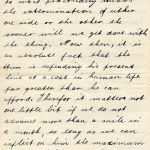 to wait practically means
the extermination of either
one side or the other the
sooner will we get done with
the thing. Now then, it is
an absolute fact that the
Hun is defending his present
line at a cost in human life
far greater than he can
afford, therefor it matters not
one little but if we do not
advance more than a mile in
a month, so long as we can
inflict on him the maximum